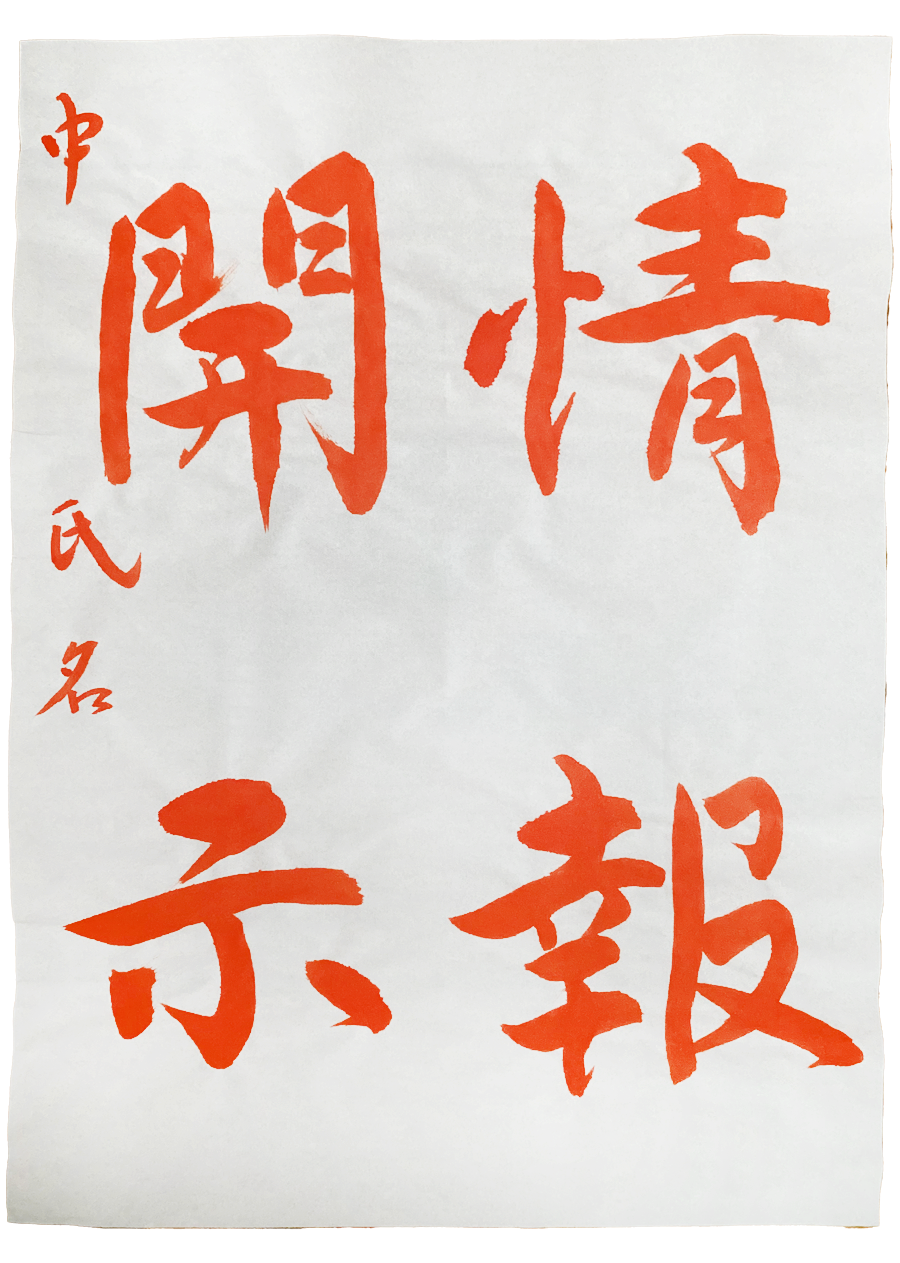 情報
開示
中 氏名